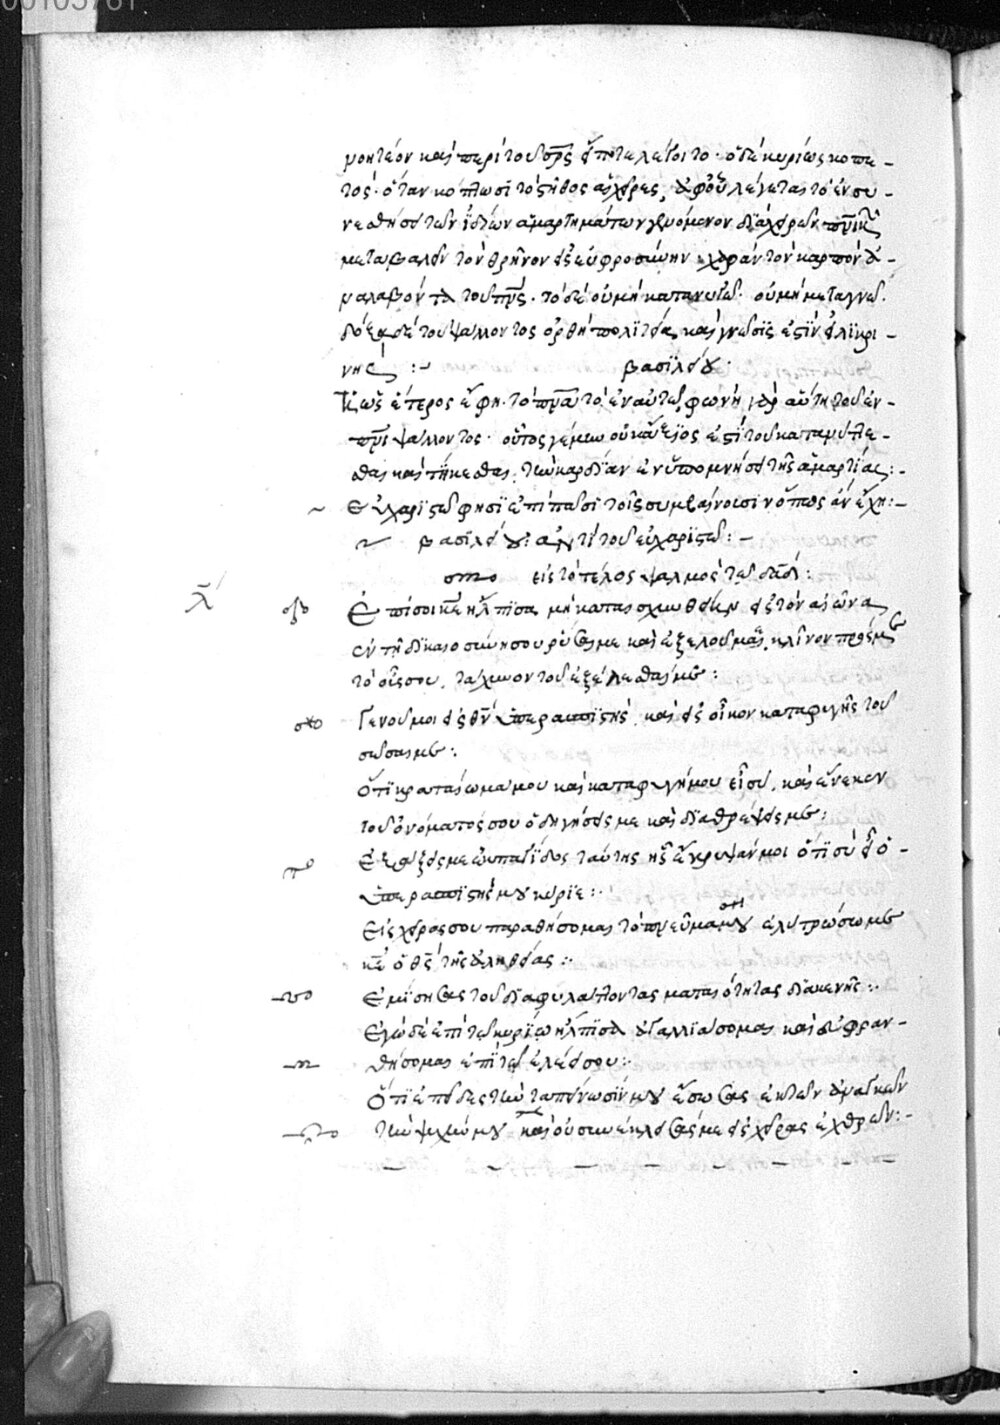 00105781
μονταίον καὶ περὶ τοῦ σρς ἐπιτελεῖτοι το· ὁ δὲ κυρίως κοπε-
τός· ὅταν κόπτωσι τὸ στῆθος αἱ χεῖρες, ἀφοῦ λέγεται τὸ ἐν συ-
νεσθήσει τῶν ἰδίων ἁμαρτημάτων γενόμενον διὰ χειρῶν πνικ
μεταβαλὼν τὸν θρῆνον εἰς εὐφροσύνην χαρὰν τὸν καρπὸν ἀ-
ναλαβόντα τοῦ πνς· τὸ δὲ οὐ μὴ κατανυγῶ· οὐ μὴ μεταγνῶ·
δόξα δὲ τοῦ ψάλλοντος ὀρθὴ πολιτεία, καὶ γνῶσις ἐστὶν εἰλικρι-
νής :~ βασιλείου:
Κ ὡς ἕτερος ἔφη· τὸ πνα τὸ ἐν αὐτῶ, φωνὴ γὰρ αὕτη τοῦ ἐν
πνι ψάλλοντος· οὗτος γέμων οὐκ ἄξιός ἐστι τοῦ κατανύττε-
σθαι καὶ τήκεσθαι, τὴν καρδίαν ἐν ὑπομνήσει τῆς ἁμαρτίας :-
Εὐχαριστῶ φησὶ ἐπὶ πᾶσι τοῖς συμβαίνουσιν ὅπως ἂν ἔχη :-
βασιλείου: ἀντὶ τοῦ εὐχαριστῶ : -
εἰς τὸ τέλος ψαλμὸς τῶ δαδ :
λ
Ἐπί σοι κε ἤλπισα μὴ καταισχυνθείην εἰς τὸν αἰῶνα
ἐν τῆ δικαιοσύνη σου ῥῦσαί με καὶ ἐξελοῦ με, κλῖνον πρός με
τὸ οὖς σου, τάχυνον τοῦ ἐξελέσθαι με :
Γενοῦ μοι εἰς θν ὑπερασπιστὴν, καὶ εἰς οἶκον καταφυγῆς τοῦ
σῶσαί με :
Ὅτι κραταίωμά μου καὶ καταφυγή μου εἶ σύ, καὶ ἕνεκεν
τοῦ ὀνόματός σου ὁδηγήσεις με καὶ διαθρέψεις με :
Ἐξάξεις με ἐκ παγίδος ταύτης ἧς ἔκρυψάν μοι ὅτι σὺ εἶ ὁ
ὑπερασπιστής μου κύριε :
Εἰς χεῖράς σου παραθήσομαι τὸ πνεῦμά μου ἐλυτρώσω με
κε ὁ θς τῆς ἀληθείας :
Ἐμίσησας τοὺς διαφυλάττοντας ματαιότητας διακενῆς :
Ἐγὼ δὲ ἐπὶ τῶ κυρίω ἤλπισα ἀγαλλιάσομαι καὶ εὐφραν-
θήσομαι ἐπὶ τῶ ἐλέει σου :
Ὅτι ἐπεῖδες τὴν ταπείνωσίν μου ἔσωσας ἐκ τῶν ἀναγκῶν
τὴν ψυχήν μου καὶ οὐ συνέκλεισάς με εἰς χεῖρας ἐχθρῶν :-